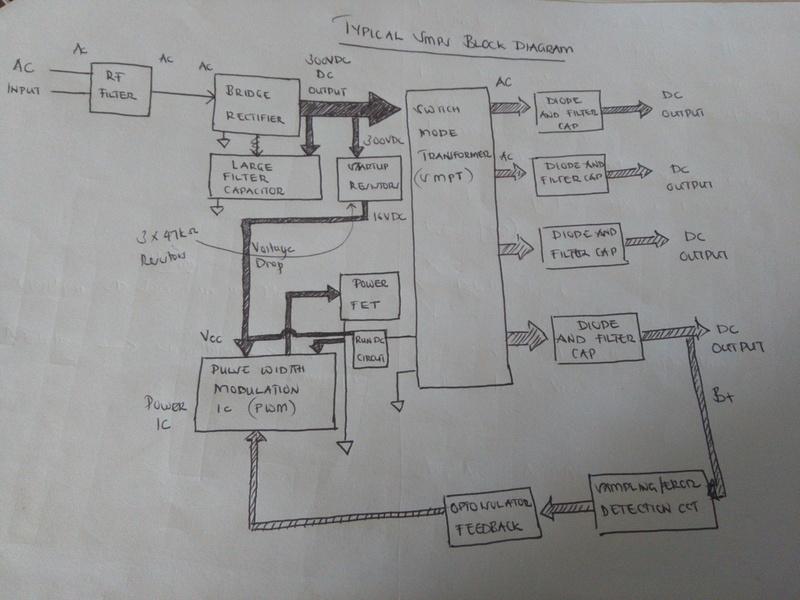 TYPICAL SMPS BLOCK DIAGRAM
AC
INPUT
AC
RF
FILTER
AC
AC
BRIDGE
RECTIFIER
300VDC
DC
OUTPUT
LARGE
FILTER
CAPACITOR
300VDC
STARTUP
RESISTORS
16VDC
3 X 47KΩ
RESISTORS
Voltage
Drop
SWITCH
MODE
TRANSFORMER
(SMPT)
AC
DIODE
AND FILTER
CAP
DC
OUTPUT
AC
DIODE AND
FILTER CAP
DC
OUTPUT
DIODE AND
FILTER CAP
DC
OUTPUT
DIODE
AND FILTER
CAP
DC
OUTPUT
B+
POWER
FET
RUN DC
CIRCUIT
VCC
PULSE WIDTH
MODULATION
IC (PWM)
POWER
IC
OPTOISOLATOR
FEEDBACK
SAMPLING/ERROR
DETECTION CCT